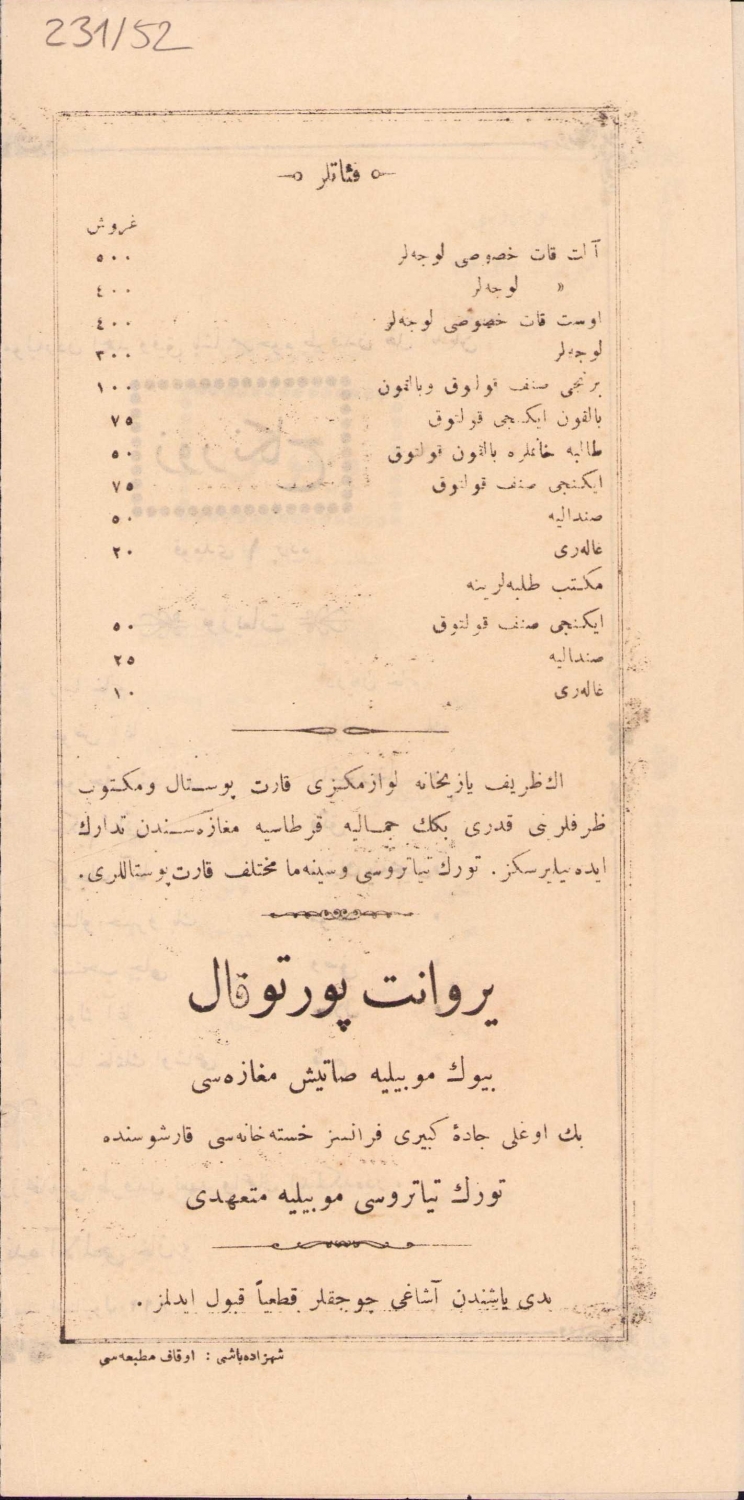 231/52
فئاتلر
غروش
آلت قات خصوصی لوجه‌لر ٥٠٠
« لوجه‌لر ٤٠٠
اوست قات خصوصی لوجه‌لر ٤٠٠
لوجه‌لر ٣٠٠
برنجی صنف قولتوق وبالقون ١٠٠
بالقون ایکنجی قولتوق ٧٥
طالبه خانملره بالقون قولتوق ٥٠
ایکنجی صنف قولتوق ٧٥
صندالیه ٥٠
غاله‌ری ٢٠
مکتب طلبه‌لرینه
ایکنجی صنف قولتوق ٥٠
صندالیه ٢٥
غاله‌ری ١٠
اك ظریف یازیخانه لوازمکزی قارت پوستال ومکتوب
ظرفلرینی قدری بکك جمالیه قرطاسیه مغازه‌سندن تدارك
ایده بیلیرسکز. تورك تیاتروسی وسینه‌ما مختلف قارت پوستاللری.
یروانت پورتوقال
بیوك موبیلیه صاتیش مغازه‌سی
بك اوغلی جادهٔ کبیری فرانسز خسته‌خانه‌سی قارشوسنده
تورك تیاتروسی موبیلیه متعهدی
یدی یاشندن آشاغی چوجقلر قطعیاً قبول ایدلمز .
شهزاده‌باشی : اوقاف مطبعه‌سی